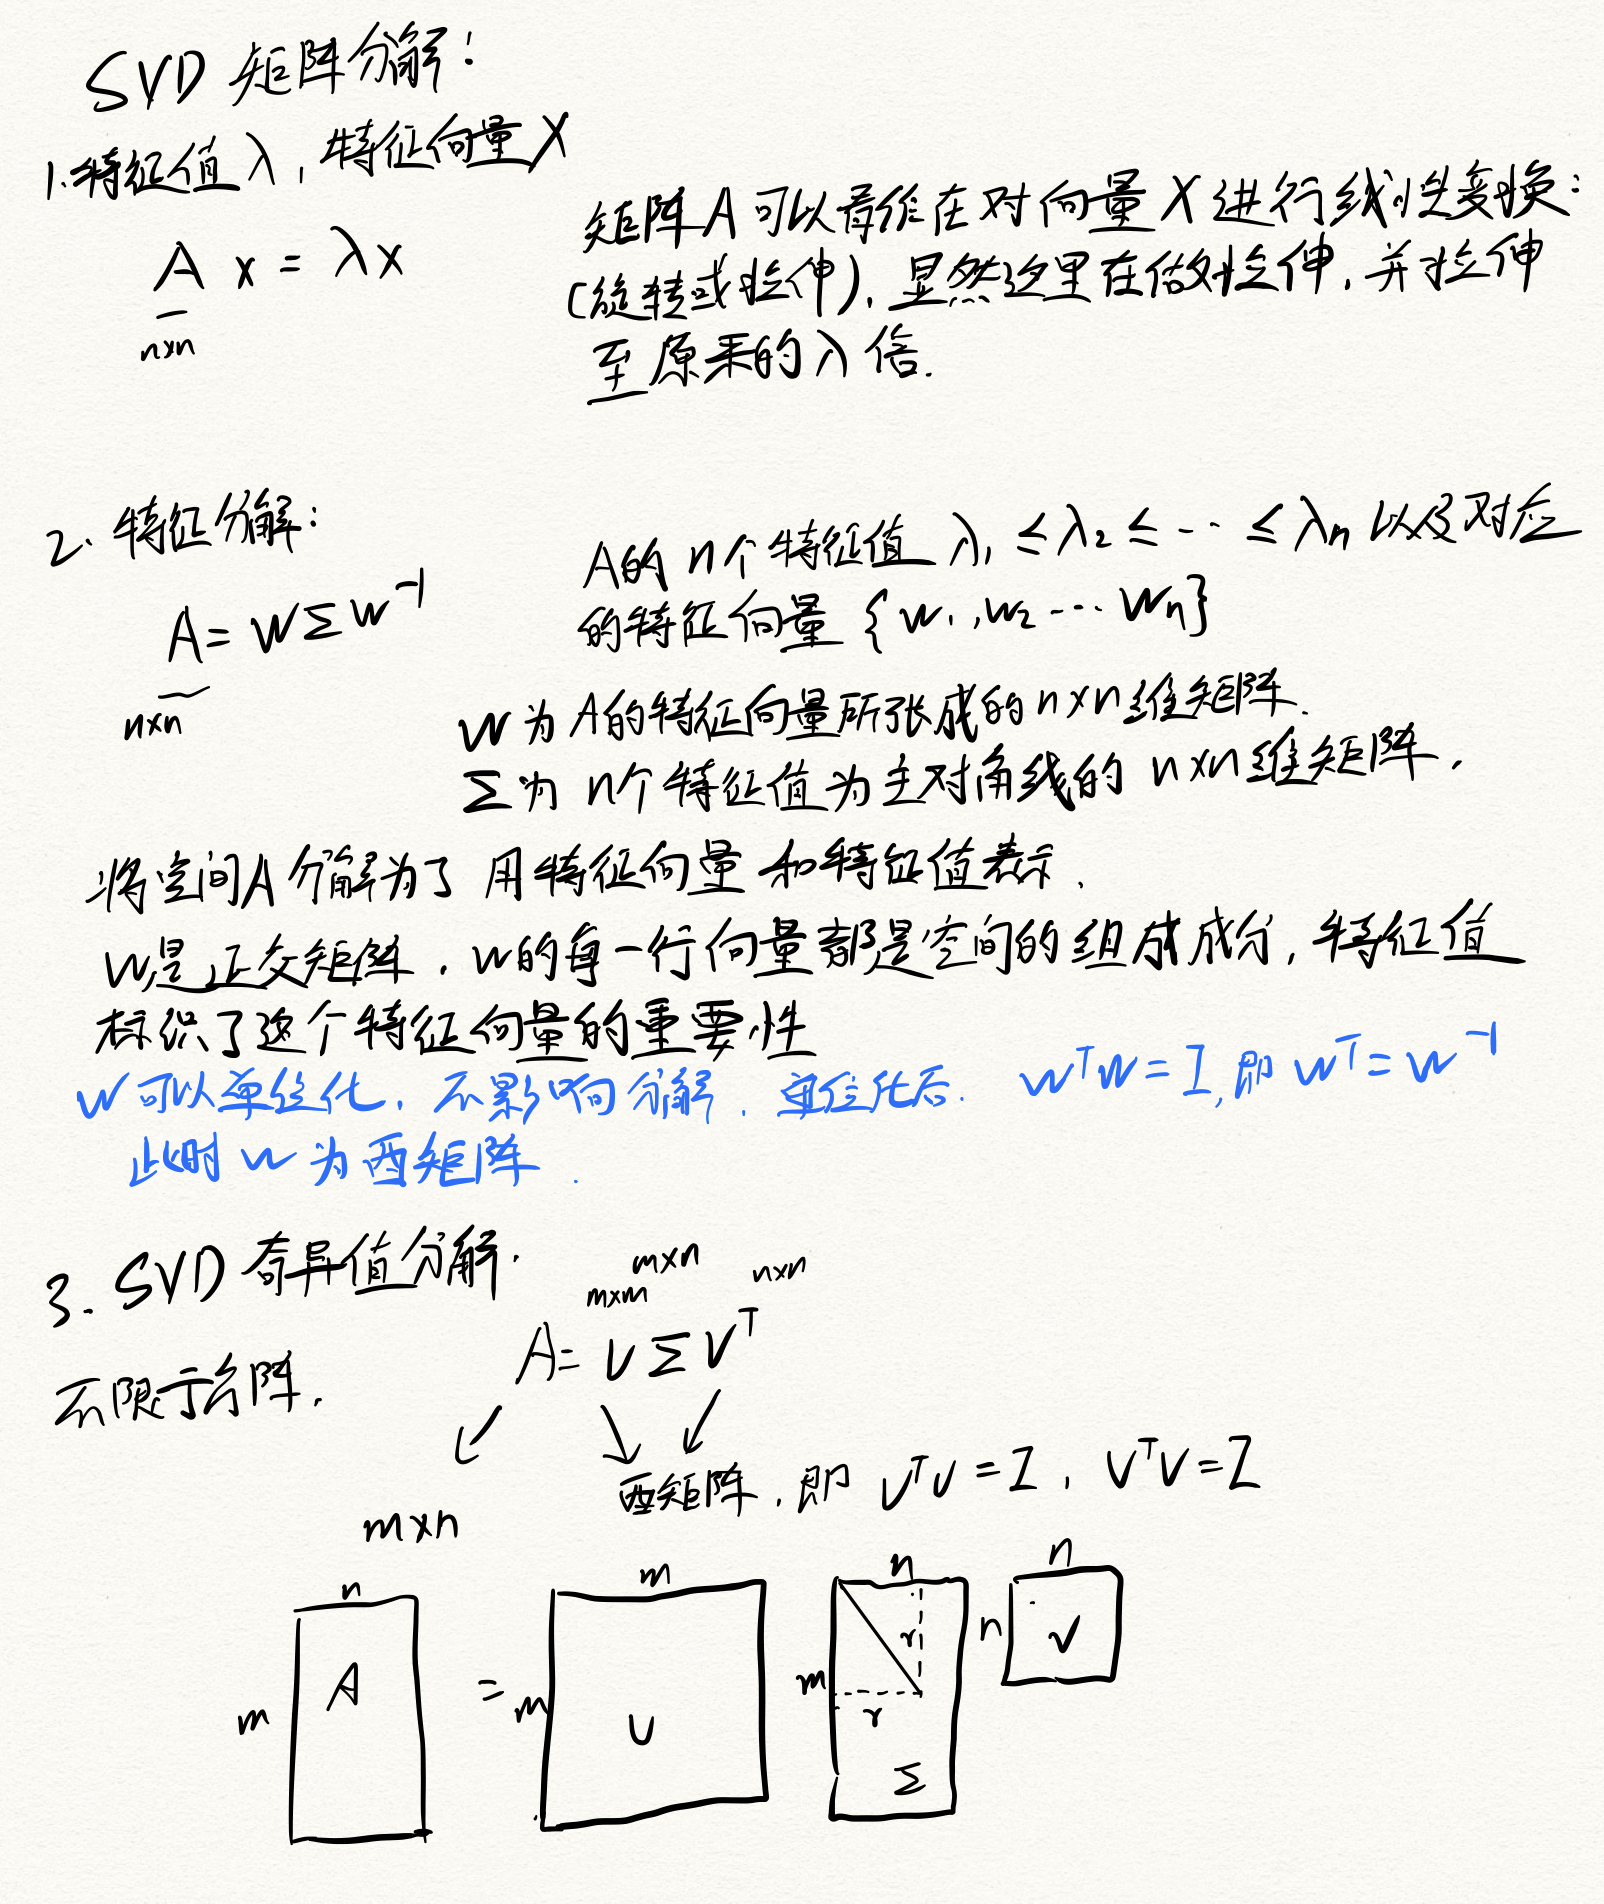 SVD 矩阵分解：
1.特征值 λ，特征向量 X
A x = λx
n×n
矩阵A可以看作在对向量X进行线性变换：
(旋转或拉伸)，显然这里在做对拉伸，并拉伸
至原来的λ倍.
2. 特征分解：
A = WΣW⁻¹
n×n
A的 n个特征值 λ₁ ≤ λ₂ ≤ -·· ≤ λn 以及对应
的特征向量 {w₁, w₂ -··· Wn}
W为A的特征向量所张成的n×n维矩阵.
Σ为 n个特征值为主对角线的 n×n维矩阵.
将空间A分解为了 用特征向量 和特征值表示.
W是正交矩阵，W的每一行向量都是空间的组成成分，特征值
标识了这个特征向量的重要性
W可以单位化，不影响分解，单位化后. WᵀW = I，即 Wᵀ = W⁻¹
此时 W 为酉矩阵.
3. SVD 奇异值分解.
m×m m×n n×n
A = U Σ Vᵀ
不限于方阵.
酉矩阵，即 UᵀU = I，VᵀV = I
m×n
n m n n
A r n V
m = m m r
U
Σ